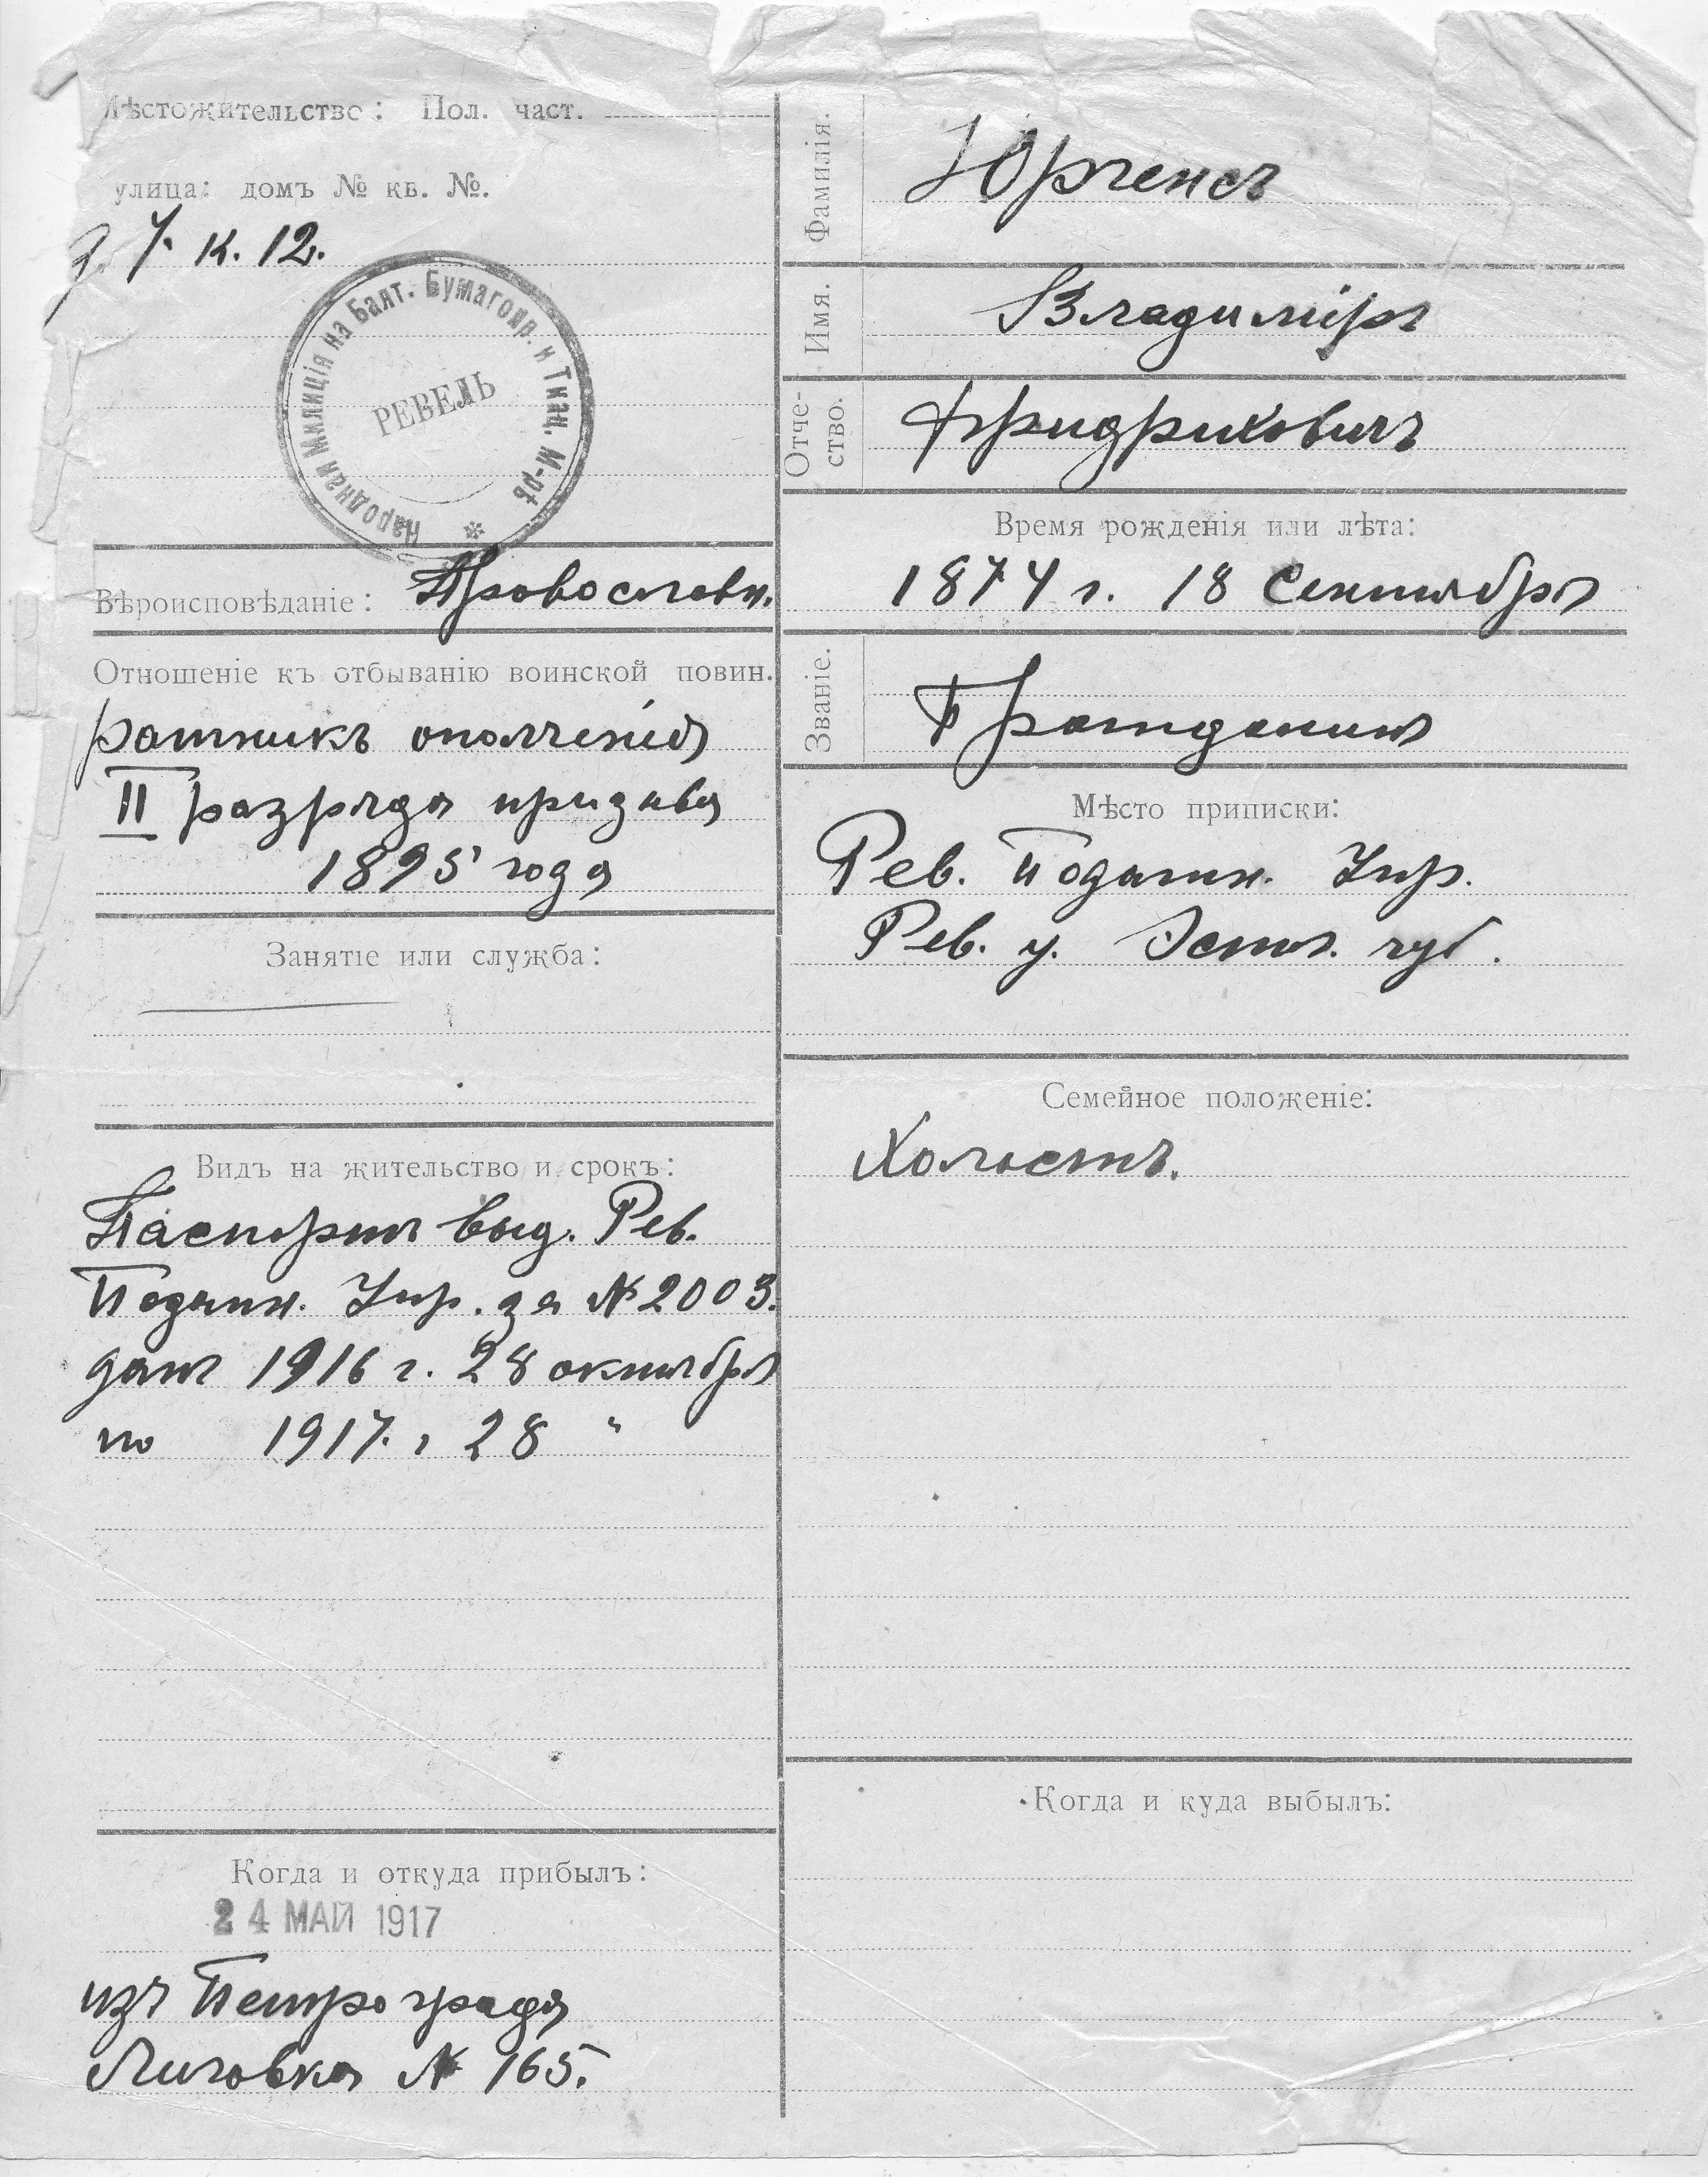 Мѣстожительство: Пол. част.
улица: домъ № кв. №.
д. 7. к. 12.
Народная Милиція на Балт. Бумагопр. и Ткац. М-рѣ
РЕВЕЛЬ
Вѣроисповѣданіе: Православн.
Отношеніе къ отбыванію воинской повин.
ратникъ ополченія
II разряда призыва
1895 года
Занятіе или служба:
Видъ на жительство и срокъ:
Паспортъ выд. Рев.
Податн. Упр. за № 2003.
данъ 1916 г. 28 октября
по 1917 г. 28 "
Когда и откуда прибылъ:
24 МАЙ 1917
изъ Петрограда
Лиговка № 165.
Фамилія. Юргенсъ
Имя. Владиміръ
Отче-
ство. Фридриховичъ
Время рожденія или лѣта:
1874 г. 18 Сентября
Званіе. Гражданинъ
Мѣсто приписки:
Рев. Податн. Упр.
Рев. у. Эстл. губ.
Семейное положеніе:
Холостъ.
Когда и куда выбылъ: